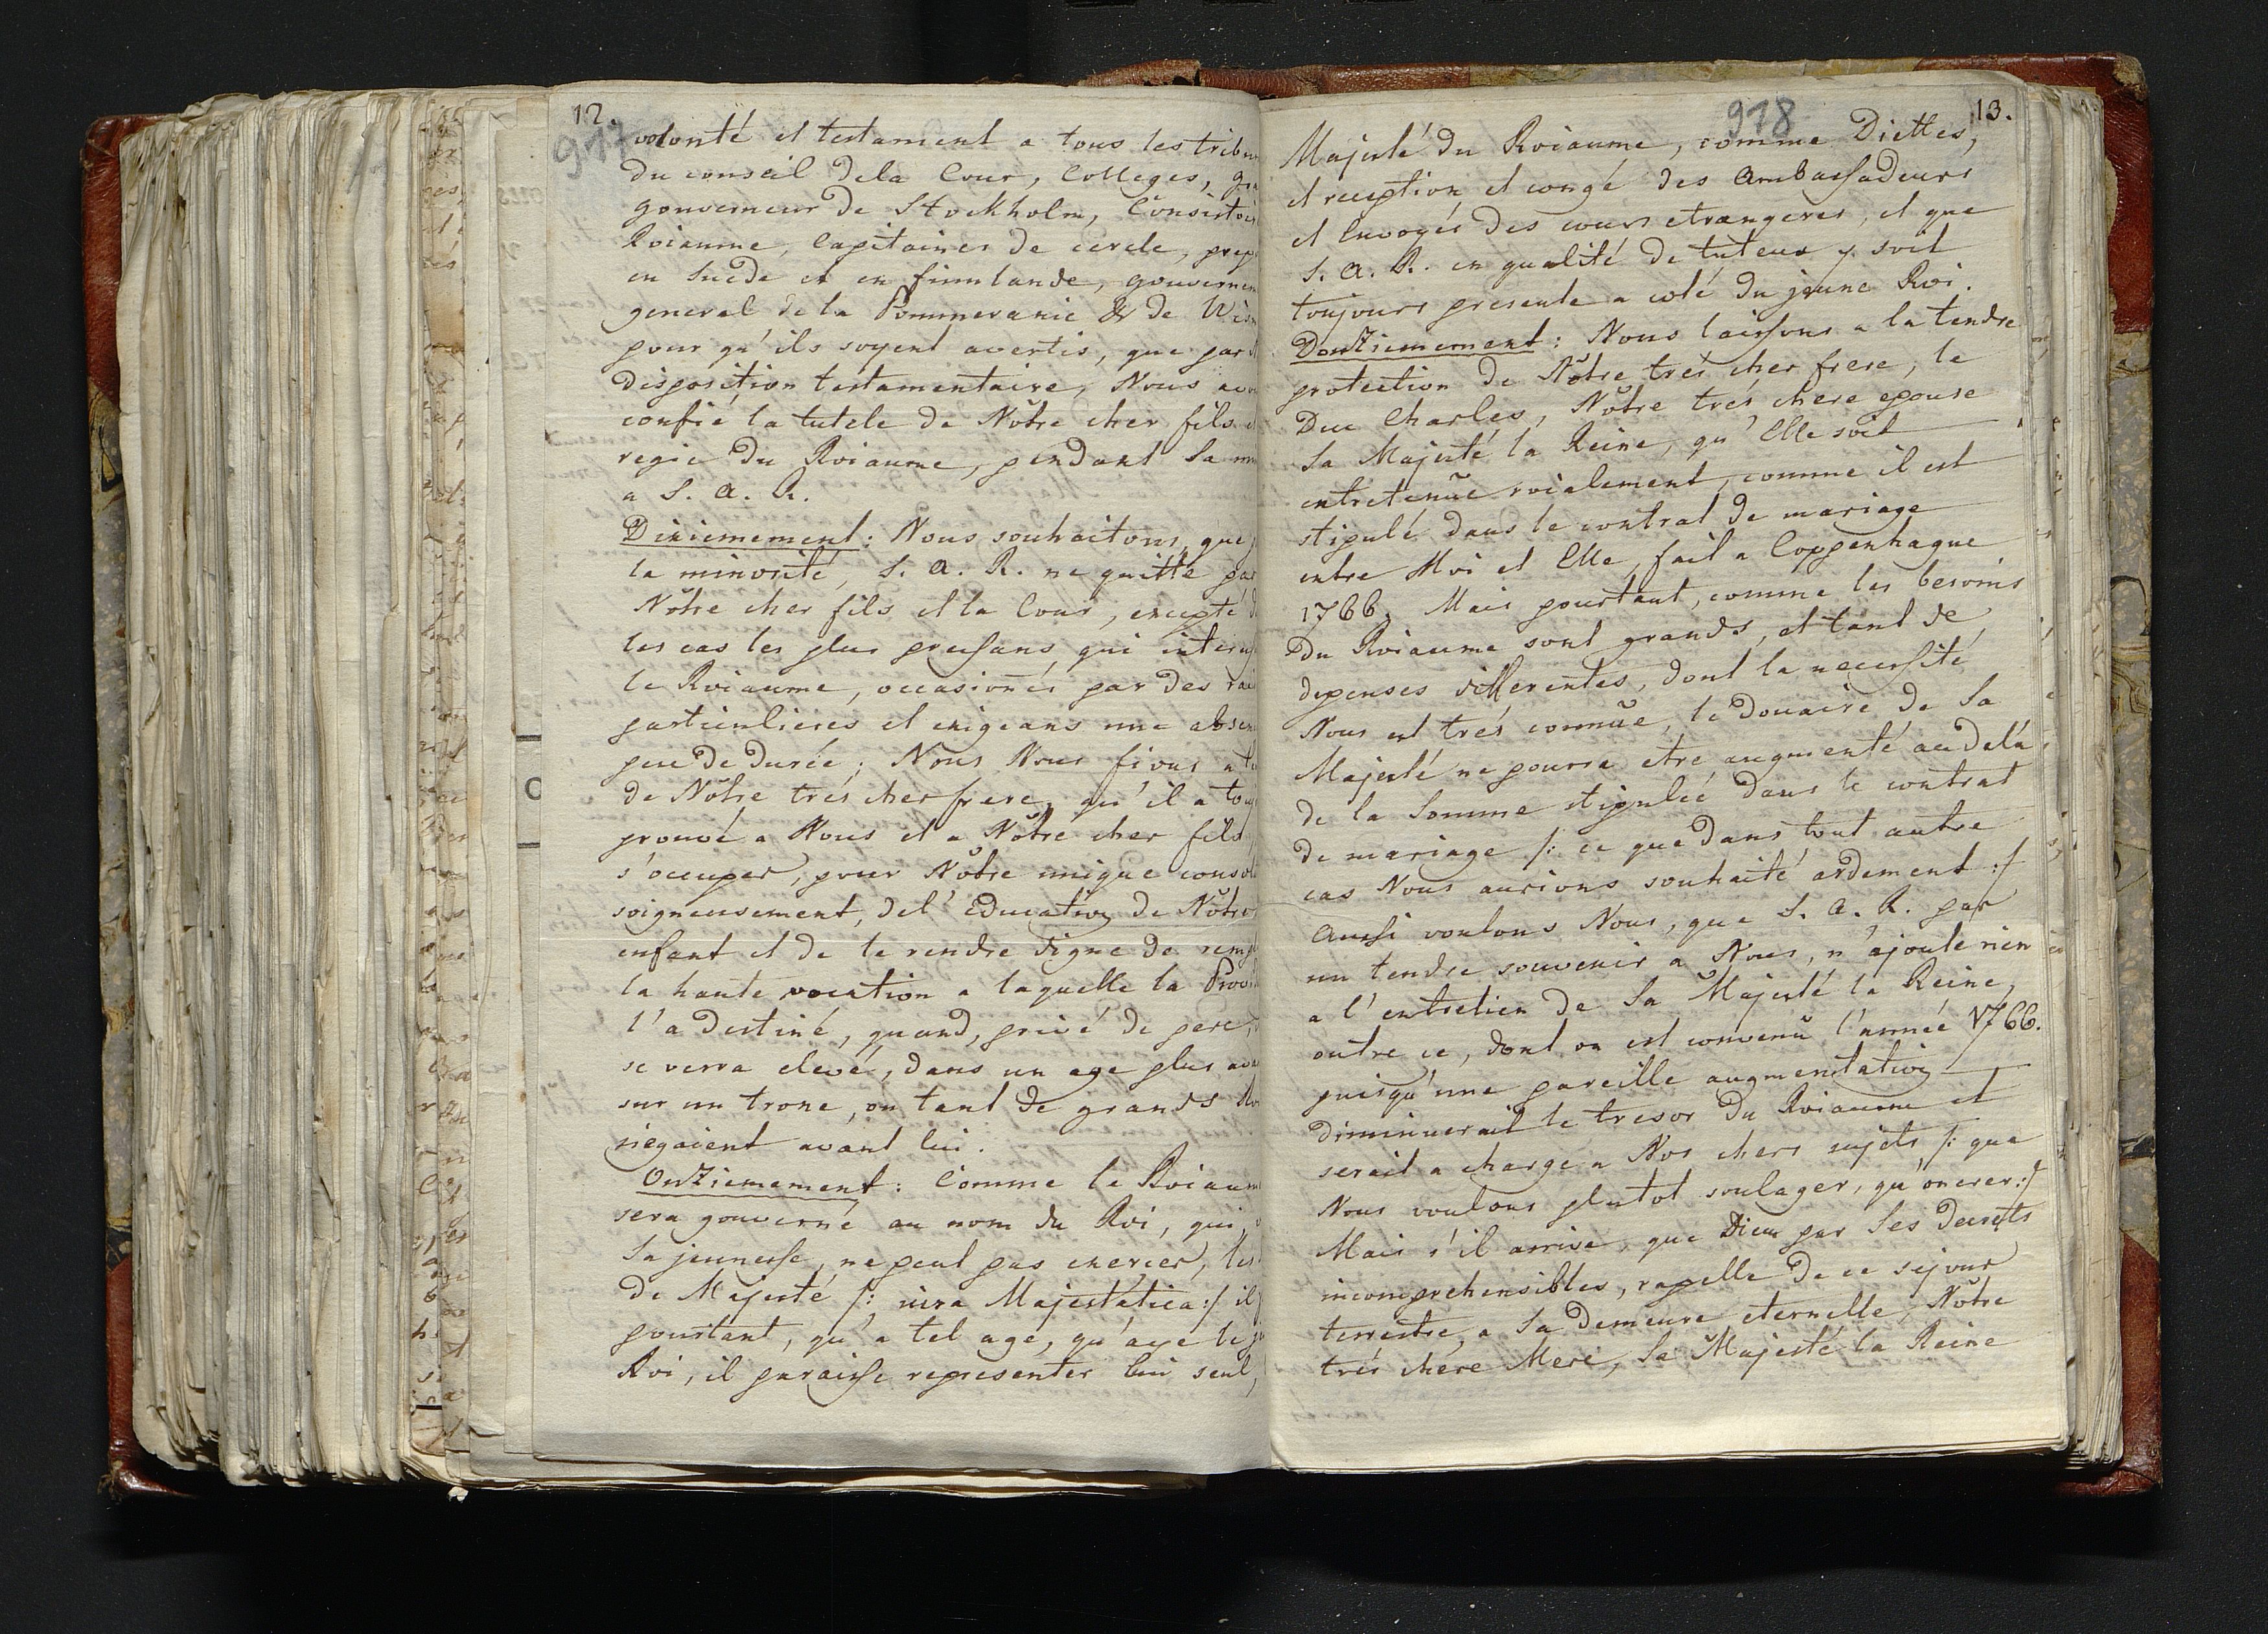 12.
917
volonté et testament a tous les tribu
du conseil dela Cour, Colleges, gr
gouverneur de Stockholm, Consistoi
Roiaume, Capitaines de cercle, prep
en Suede et en finnlande, gouverne
general de la Pommeranie & de Wis
pour qu'ils soyent avertis, que par
disposition testamentaire, Nous avo
confié la tutele de Nôtre cher fils
regie du Roiaume, pendant Sa
a S. A. R.
Dixiemement: Nous souhaitons, que
la minorité, S. A. R. ne quitte pas
Nôtre cher fils et la Cour, excepté
les cas les plus pressans, qui interes
le Roiaume, occasionés par des rai
particulieres et exigeans une absen
peu de durée; Nous Nous fions a
de Nôtre trés cher frere, qu'il a touj
prouvé a Nous et a Nôtre cher fils
s'occuper, pour Nôtre unique consol
soigneusement, del' Education de Nôtre
enfant et de le rendre digne de remp
la haute vocation a laquelle la Provi
l'a destiné, quand, privé de pere,
se verra elevé, dans un age plus ava
sur un trone, ou tant de grands Ro
siegaient avant lui.
Onziemement: Comme le Roiaum
sera gouverné au nom du Roi, qui,
Sa jeunesse, ne peut pas exercer, les
de Majesté /: iura Majestatica :/ il
pourtant, qu'a tel age, qu'aye le
Roi, il paraisse representer lui seul,
918
13.
Majesté du Roiaume, comme Diettes,
et reception et congé des Ambassadeurs
et Envoyés des cours etrangeres, et que
S. A. R. en qualité de tuteur y soit
toujours presente a coté du jeune Roi.
Douziemement: Nous laissons a la tendre
protection de Nôtre trés cher frere, le
Duc Charles, Nôtre trés chere epouse
Sa Majesté la Reine, qu'Elle soit
entretenüe roialement, comme il est
stipulé dans le contrat de mariage
entre Moi et Elle, fait a Coppenhague
1766. Mais pourtant, comme les besoins
du Roiaume sont grands, et tant de
depenses differentes, dont la necessité
Nous est trés connüe, le douaire de Sa
Majesté ne pourra etre augmenté au delà
de la Somme stipulée dans le contrat
de mariage /: ce que dans tout autre
cas Nous aurions souhaité ardement :/
Aussi voulons Nous, que S. A. R. par
un tendre souvenir a Nous, n'ajoute rien
a l'entretien de Sa Majesté la Reine,
outre ce, dont on est convenü l'année 1766.
puisqu'une pareille augmentation
diminuerait le tresor du Roiaume et
serait a charge a Nos chers sujets /: que
Nous voulons plutot soulager, qu'onerer :/
Mais s'il arrive, que Dieu par Ses decrets
incomprehensibles, rapelle de ce sejour
terrestre, a Sa demeure eternelle, Nôtre
trés chere Mere, Sa Majesté la Reine